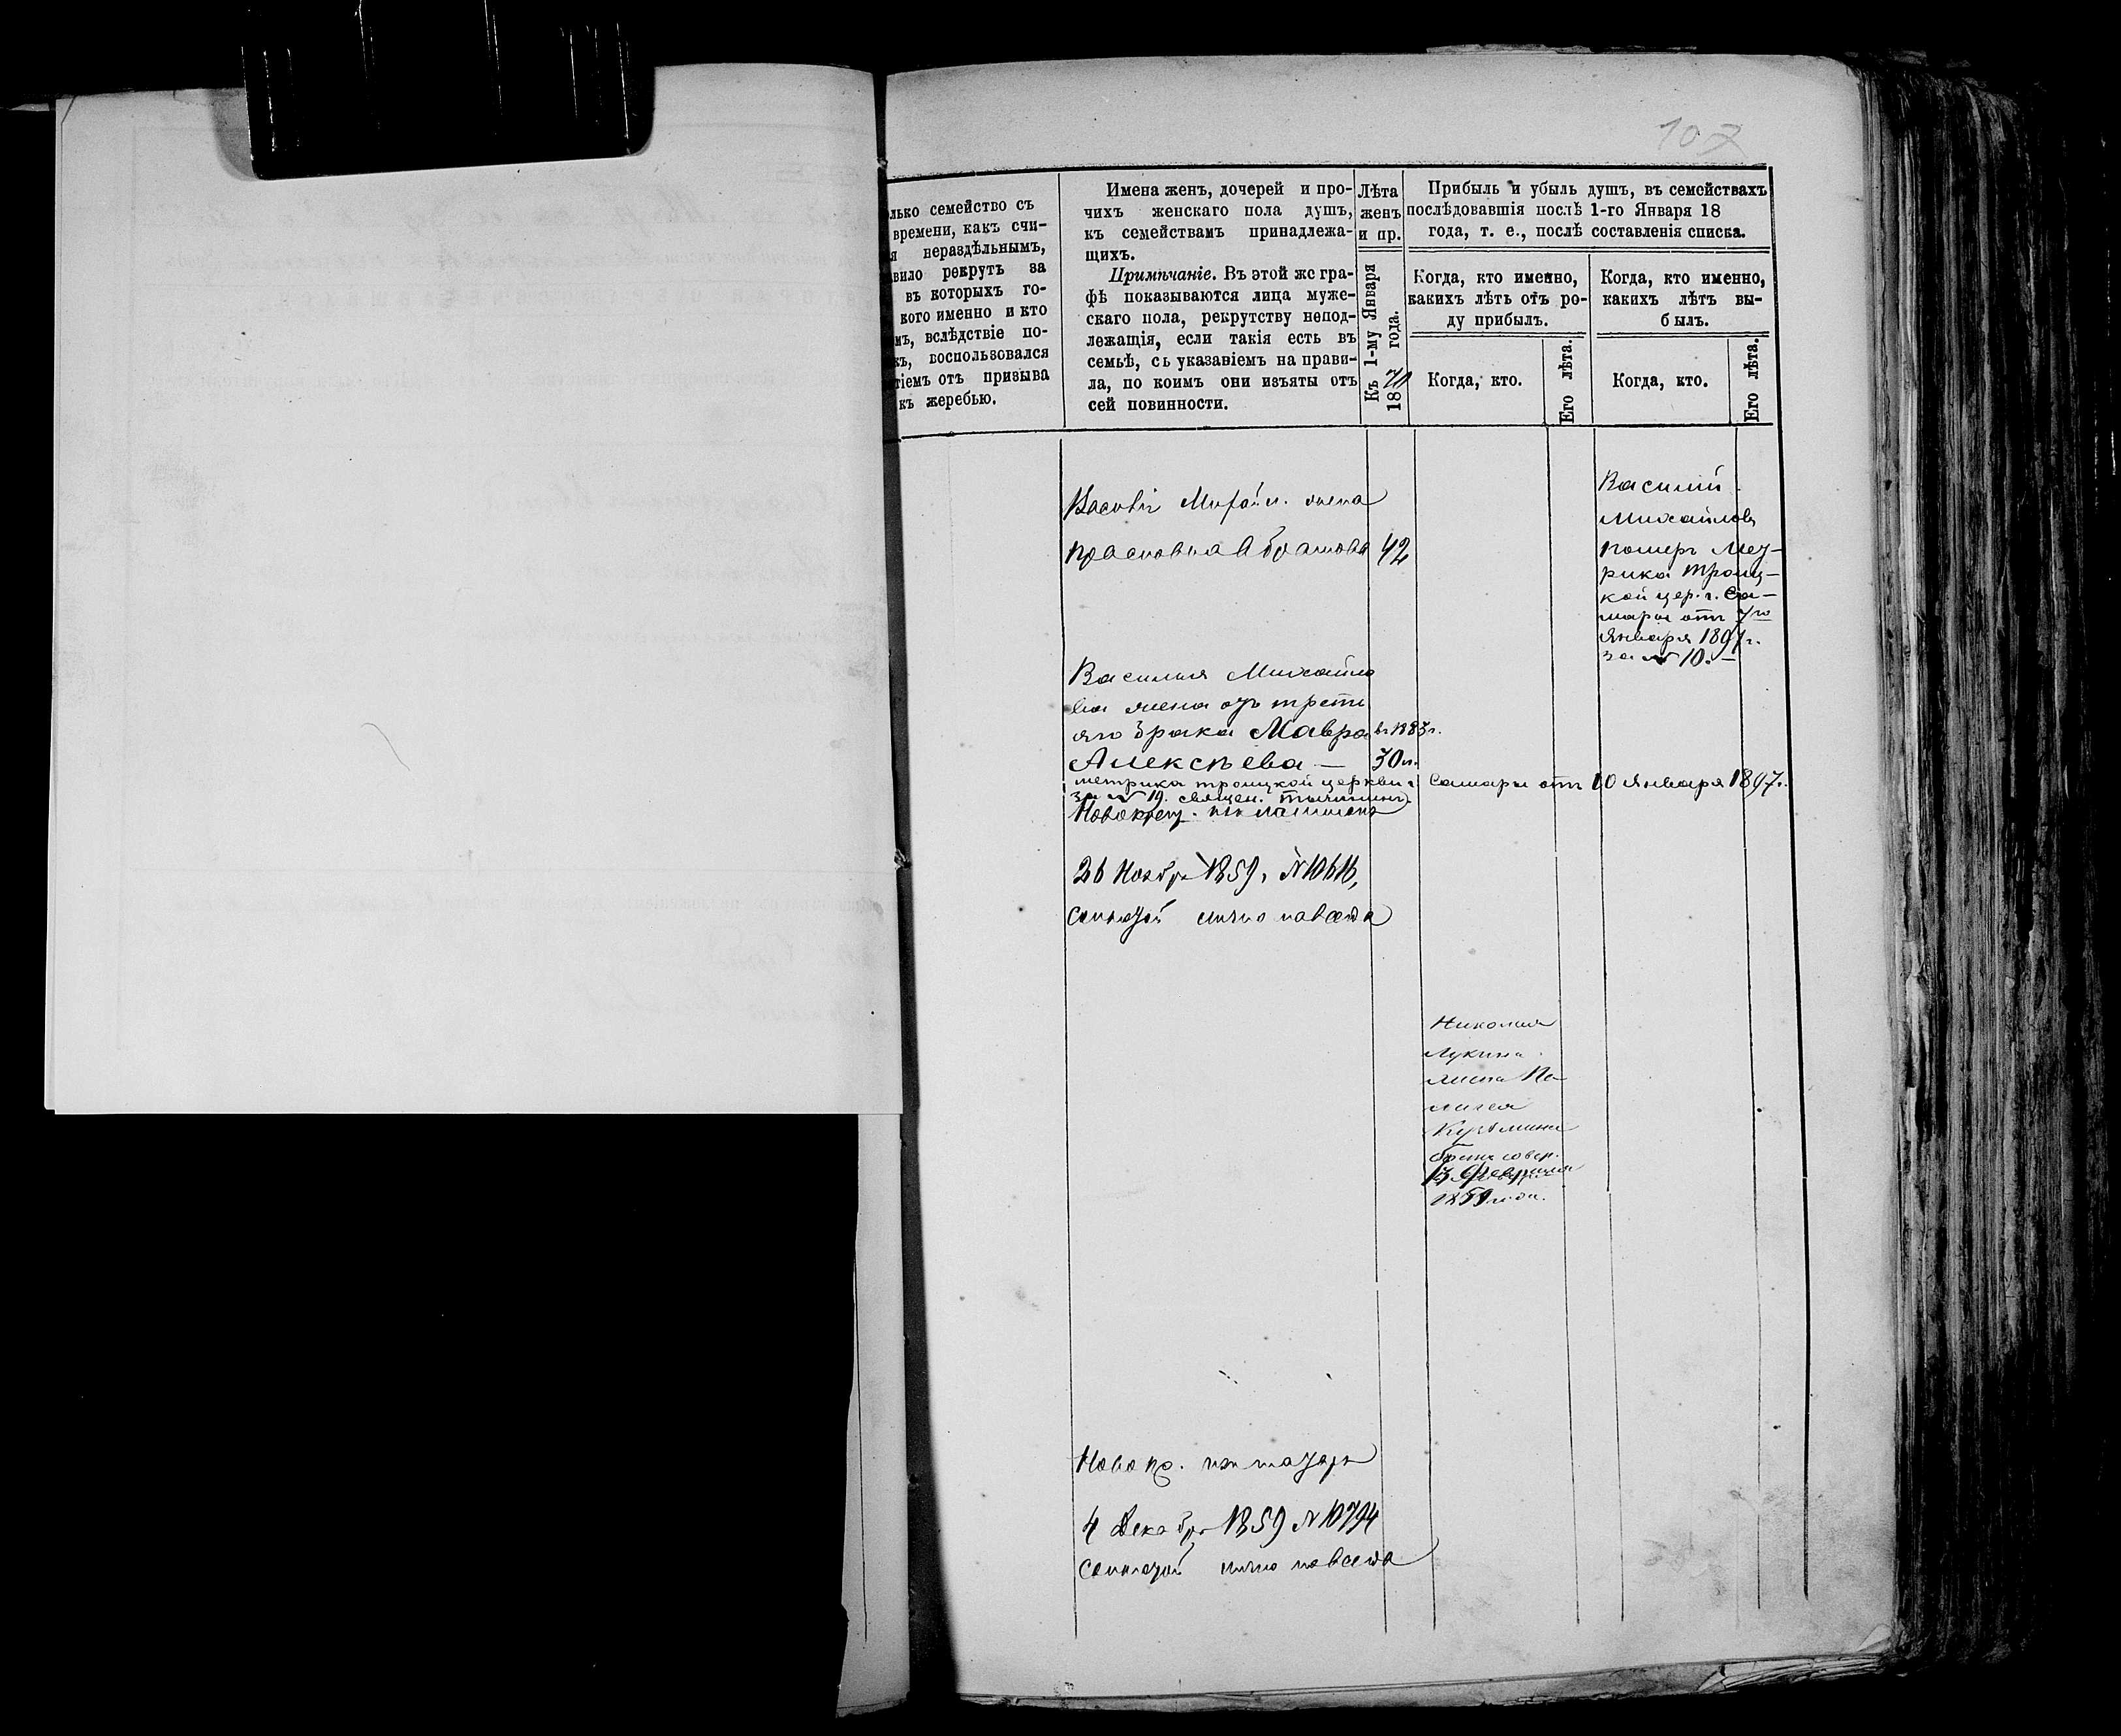 107
олько семейство съ
времени, какъ счи-
я нераздѣльнымъ,
авило рекрутъ за
въ которыхъ го-
кого именно и кто
мъ, вслѣдствіе по-
къ, воспользовался
тіемъ отъ призыва
къ жеребью.
Имена женъ, дочерей и про-
чихъ женскаго пола душъ,
къ семействамъ принадлежа-
щихъ.
Примѣчаніе. Въ этой же гра-
фѣ показываются лица муже-
скаго пола, рекрутству непод-
лежащія, если такія есть въ
семьѣ, съ указаніемъ на прави-
ла, по коимъ они изъяты отъ
сей повинности.
Лѣта
женъ
и пр.
Къ 1-му Января
1870 года.
Прибыль и убыль душъ, въ семействахъ
послѣдовавшія послѣ 1-го Января 18
года, т. е., послѣ составленія списка.
Когда, кто именно,
какихъ лѣтъ отъ ро-
ду прибылъ.
Когда, кто.
Его лѣта.
Когда, кто именно,
какихъ лѣтъ вы-
былъ.
Когда, кто.
Его лѣта.
Михайл. жена
42
Василій
Михайловъ
померъ Мет-
рика Троиц-
кой цер. г. Са-
мары отъ 7го
Января 1897 г.
за № 10. –
Василия Михайло
ва жена отъ треть
яго брака Мавра в 1883 г.
Алексѣева — 30 л.
метрика троицкой церкви г. Самары отъ 10 января 1897 г.
за № 19. священ.
Новокрещ. из
26 Ноябр 1859, № 10616,
лично навсегда
Николая
Лукина
жена Пе-
лагея
Кузьмина
бракъ совер.
13 Февраля
1859 года.
Новокр. из татаръ
4 Декабр 1859 № 10794
лично навсегда